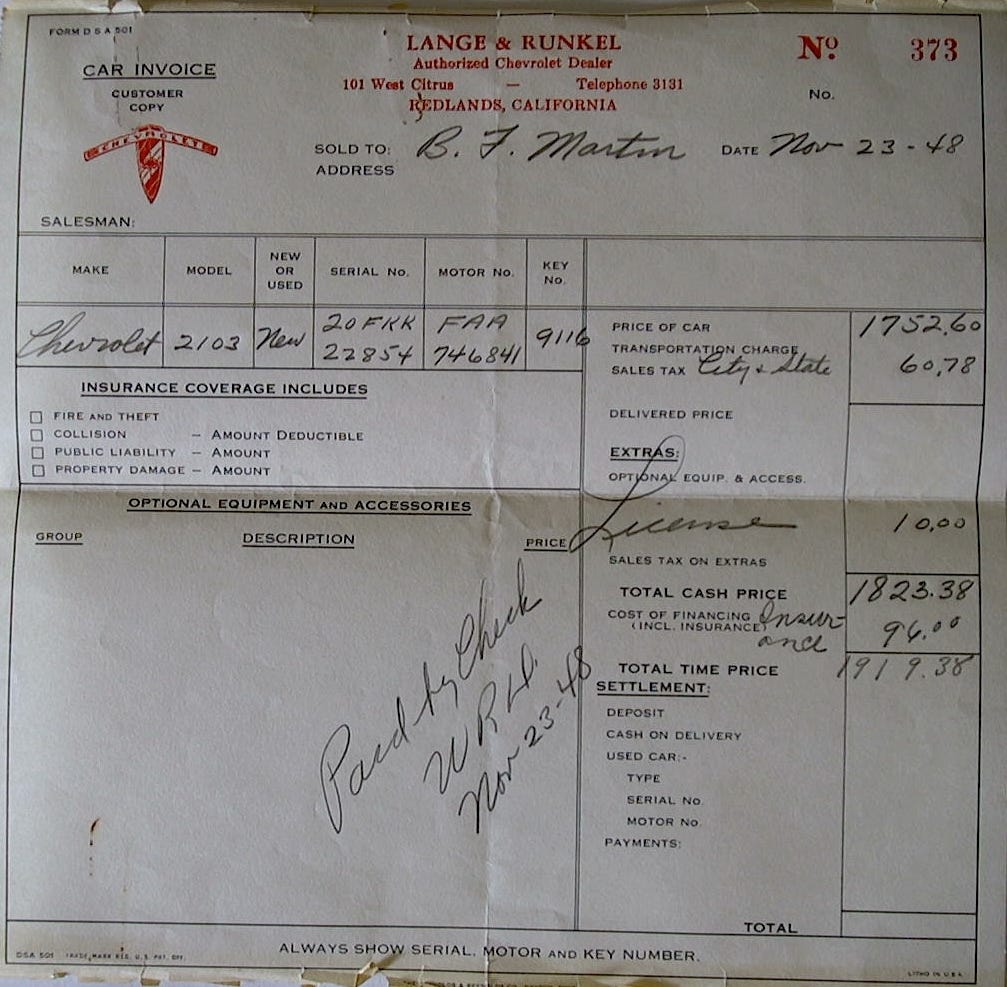 FORM D S A 501
CAR INVOICE
CUSTOMER
COPY
CHEVROLET
LANGE & RUNKEL
Authorized Chevrolet Dealer
101 West Citrus — Telephone 3131
REDLANDS, CALIFORNIA
Nº 373
No.
SOLD TO: B. F. Martin DATE Nov 23-48
ADDRESS
SALESMAN:
MAKE MODEL NEW OR USED SERIAL No. MOTOR No. KEY No.
Chevrolet 2103 New 20FKK 22854 FAA 746841 9116
PRICE OF CAR 1752.60
TRANSPORTATION CHARGE
SALES TAX City & State 60.78
DELIVERED PRICE
EXTRAS:
OPTIONAL EQUIP. & ACCESS.
License 10.00
SALES TAX ON EXTRAS
TOTAL CASH PRICE 1823.38
COST OF FINANCING Insur-
(INCL. INSURANCE) ance 96.00
TOTAL TIME PRICE 1919.38
SETTLEMENT:
DEPOSIT
CASH ON DELIVERY
USED CAR:-
TYPE
SERIAL No.
MOTOR No.
PAYMENTS:
TOTAL
INSURANCE COVERAGE INCLUDES
FIRE AND THEFT
COLLISION — AMOUNT DEDUCTIBLE
PUBLIC LIABILITY — AMOUNT
PROPERTY DAMAGE — AMOUNT
OPTIONAL EQUIPMENT AND ACCESSORIES
GROUP DESCRIPTION PRICE
Paid by Check
Nov 23-48
ALWAYS SHOW SERIAL, MOTOR AND KEY NUMBER.
DSA 501 TRADE MARK REG. U.S. PAT. OFF.
LITHO IN U.S.A.